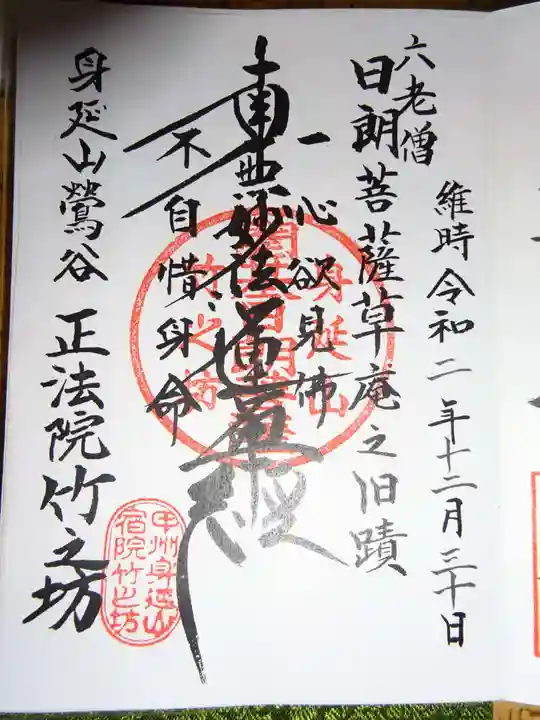 六老僧
日朗菩薩草庵之旧蹟
維時令和二年十二月三十日
一心欲見佛
南無妙法蓮華経
不自惜身命
身延山鶯谷 正法院竹之坊
甲州身延山
宿院竹之坊